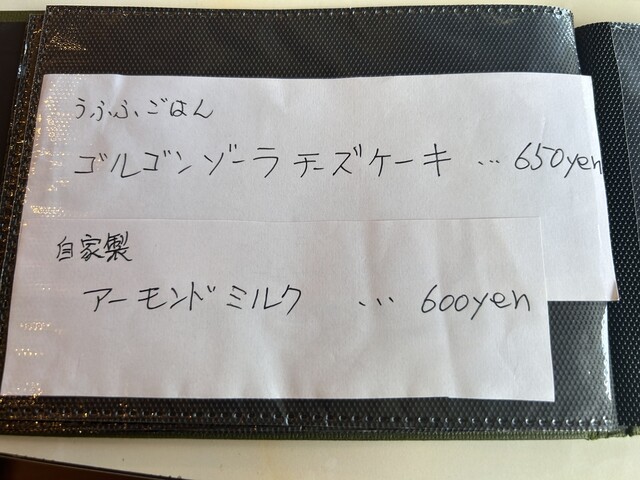 うふふごはん
ゴルゴンゾーラチーズケーキ … 650yen
自家製
アーモンドミルク … 600yen